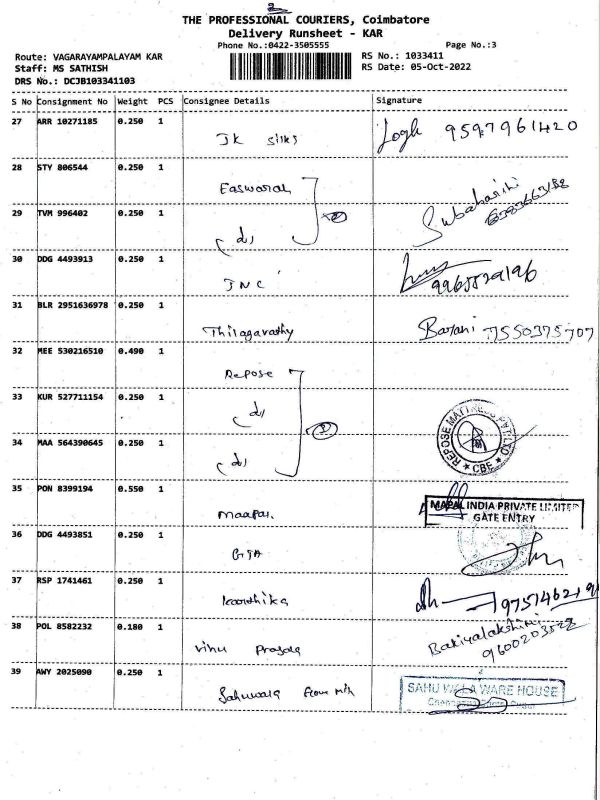 2
THE PROFESSIONAL COURIERS, Coimbatore
Delivery Runsheet - KAR
Phone No.:0422-3505555 Page No.:3
Route: VAGARAYAMPALAYAM KAR RS No.: 1033411
Staff: MS SATHISH RS Date: 05-Oct-2022
DRS No.: DCJB103341103
S No Consignment No Weight PCS Consignee Details Signature
27 ARR 10271185 0.250 1
JK Silks 9597961420
28 STY 806544 0.250 1
Easwaran
29 TVM 996402 0.250 1
(d) 2 Subaharini
30 DDG 4493913 0.250 1
JNC
31 BLR 2951636978 0.250 1
Thilagavathy Barani 7550375707
32 MEE 530216510 0.490 1
Repose
33 KUR 527711154 0.250 1
(d) 3
34 MAA 564390645 0.250 1
(d)
REPOSE MATTRESS PVT LTD
CBE
35 PON 8399194 0.550 1
MAPAL INDIA PRIVATE LIMITED
GATE ENTRY
36 DDG 4493851 0.250 1
37 RSP 1741461 0.250 1
Karthika
38 POL 8582232 0.180 1
Vinu Bakiyalakshmi
39 AWY 2025090 0.250 1
Sahuwala Flour Mill
SAHU WALA WARE HOUSE